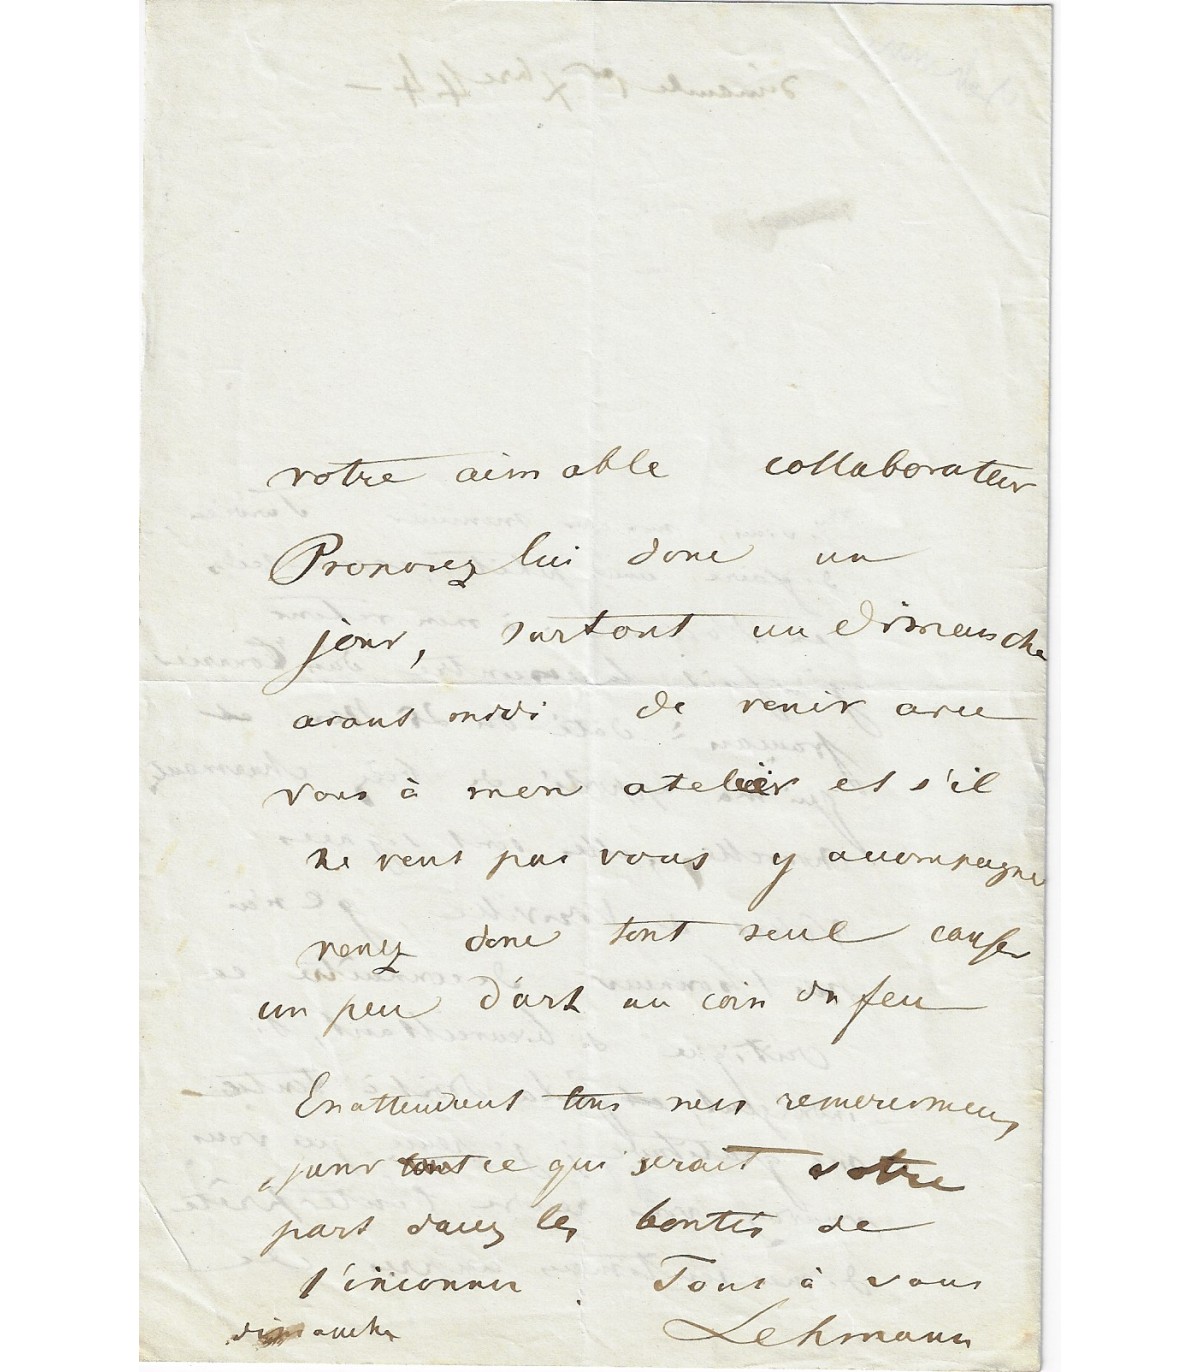 votre aimable collaborateur
Proposez lui donc un
jour, surtout un dimanche
avant midi de venir avec
vous à mon atelier et s'il
ne veut pas vous y accompagner
venez donc tout seul causer
un peu d'art au coin du feu
En attendant tous mes remerciemens
pour tout ce qui serait votre
part dans les bontés de
l'inconnu. Tout à vous
dimanche Lehmann